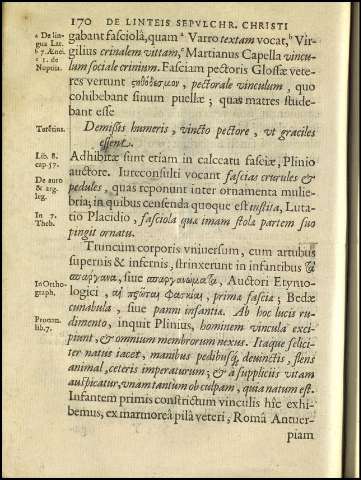 170 DE LINTEIS SEPVLCHR. CHRISTI
a De lin-
gua Lat.
b 7. Æneï.
c 1. de
Nuptiis.
gabant fasciolâ, quam a Varro textam vocat, b Vir-
gilius crinalem vittam, c Martianus Capella vincu-
lum sociale crinium. Fasciam pectoris Glossæ vete-
res vertunt στηθόδεσμον, pectorale vinculum, quo
cohibebant sinum puellæ; quas matres stude-
bant esse
Terētius.
Demissis humeris, vincto pectore, vt graciles
essent.
Lib. 8.
cap. 57.
De auro
& arg.
leg.
Adhibitæ sunt etiam in calceatu fasciæ, Plinio
auctore. Iureconsulti vocant fascias crurules &
pedules, quas reponunt inter ornamenta mulie-
bria; in quibus censenda quoque est instita, Luta-
In 7.
Theb.
tio Placidio, fasciola qua imam stola partem suo
pingit ornatu.
Truncum corporis vniuersum, cum artubus
supernis & infernis, strinxerunt in infantibus τὰ
σπάργανα, siue σπαργανώματα, Auctori Etymo-
In Ortho-
graph.
logici, αἱ πρῶται φασκίαι, prima fascia; Bedæ
cunabula, siue panni infantiæ. Ab hoc lucis ru-
Proœm.
lib. 7.
dimento, inquit Plinius, hominem vincula exci-
piunt, & omnium membrorum nexus. Itaque felici-
ter natus iacet, manibus pedibusq; deuinctis, flens
animal, ceteris imperaturum; & à suppliciis vitam
auspicatur, vnam tantum ob culpam, quia natum est.
Infantem primis constrictum vinculis hîc exhi-
bemus, ex marmoreâ pilâ veteri, Româ Antuer-
piam